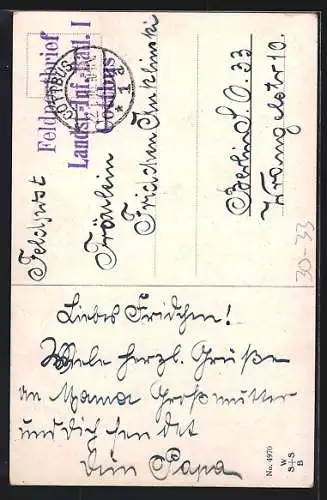 Feldpost
Feldpostbrief
Landst. Inf. Batl. I
Cottbus
COTTBUS
* 1
Fräulein
Fridchen
Berlin S.O. 33
Wrangelstr 10.
30-33
Liebes Fridchen!
Viele herzl. Grüße
an Mama Großmutter
und Dich sendet
Dein Papa
No. 4970
W
S+S
B